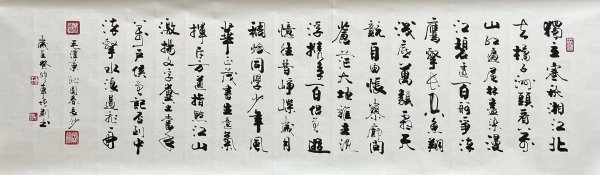 獨立寒秋湘江北
去橘子洲頭看萬
山紅遍層林盡染漫
江碧透百舸爭流
鷹擊長空魚翔
淺底萬類霜天
競自由悵寥廓問
蒼茫大地誰主沉
浮携來百侣曾遊
憶往昔崢嶸歲月
稠恰同學少年風
華正茂書生意氣
揮斥方遒指點江山
激揚文字糞土當年
萬户侯曾記否到中
流擊水浪遏飛舟
毛澤東沁園春長沙
歲在癸卯